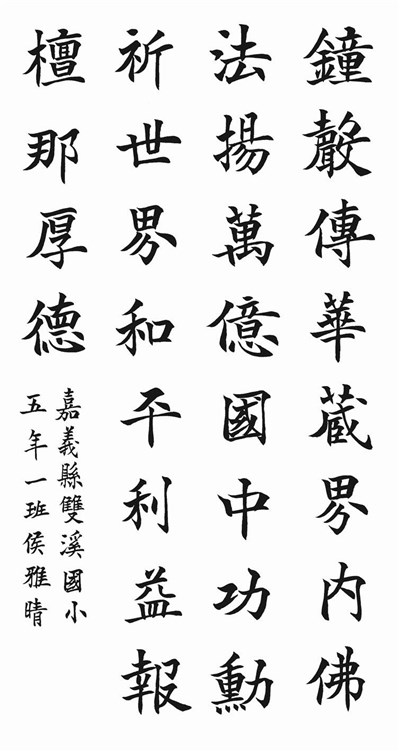 鐘聲傳華藏界內佛
法揚萬億國中功勳
祈世界和平利益報
檀那厚德
嘉義縣雙溪國小
五年一班侯雅晴